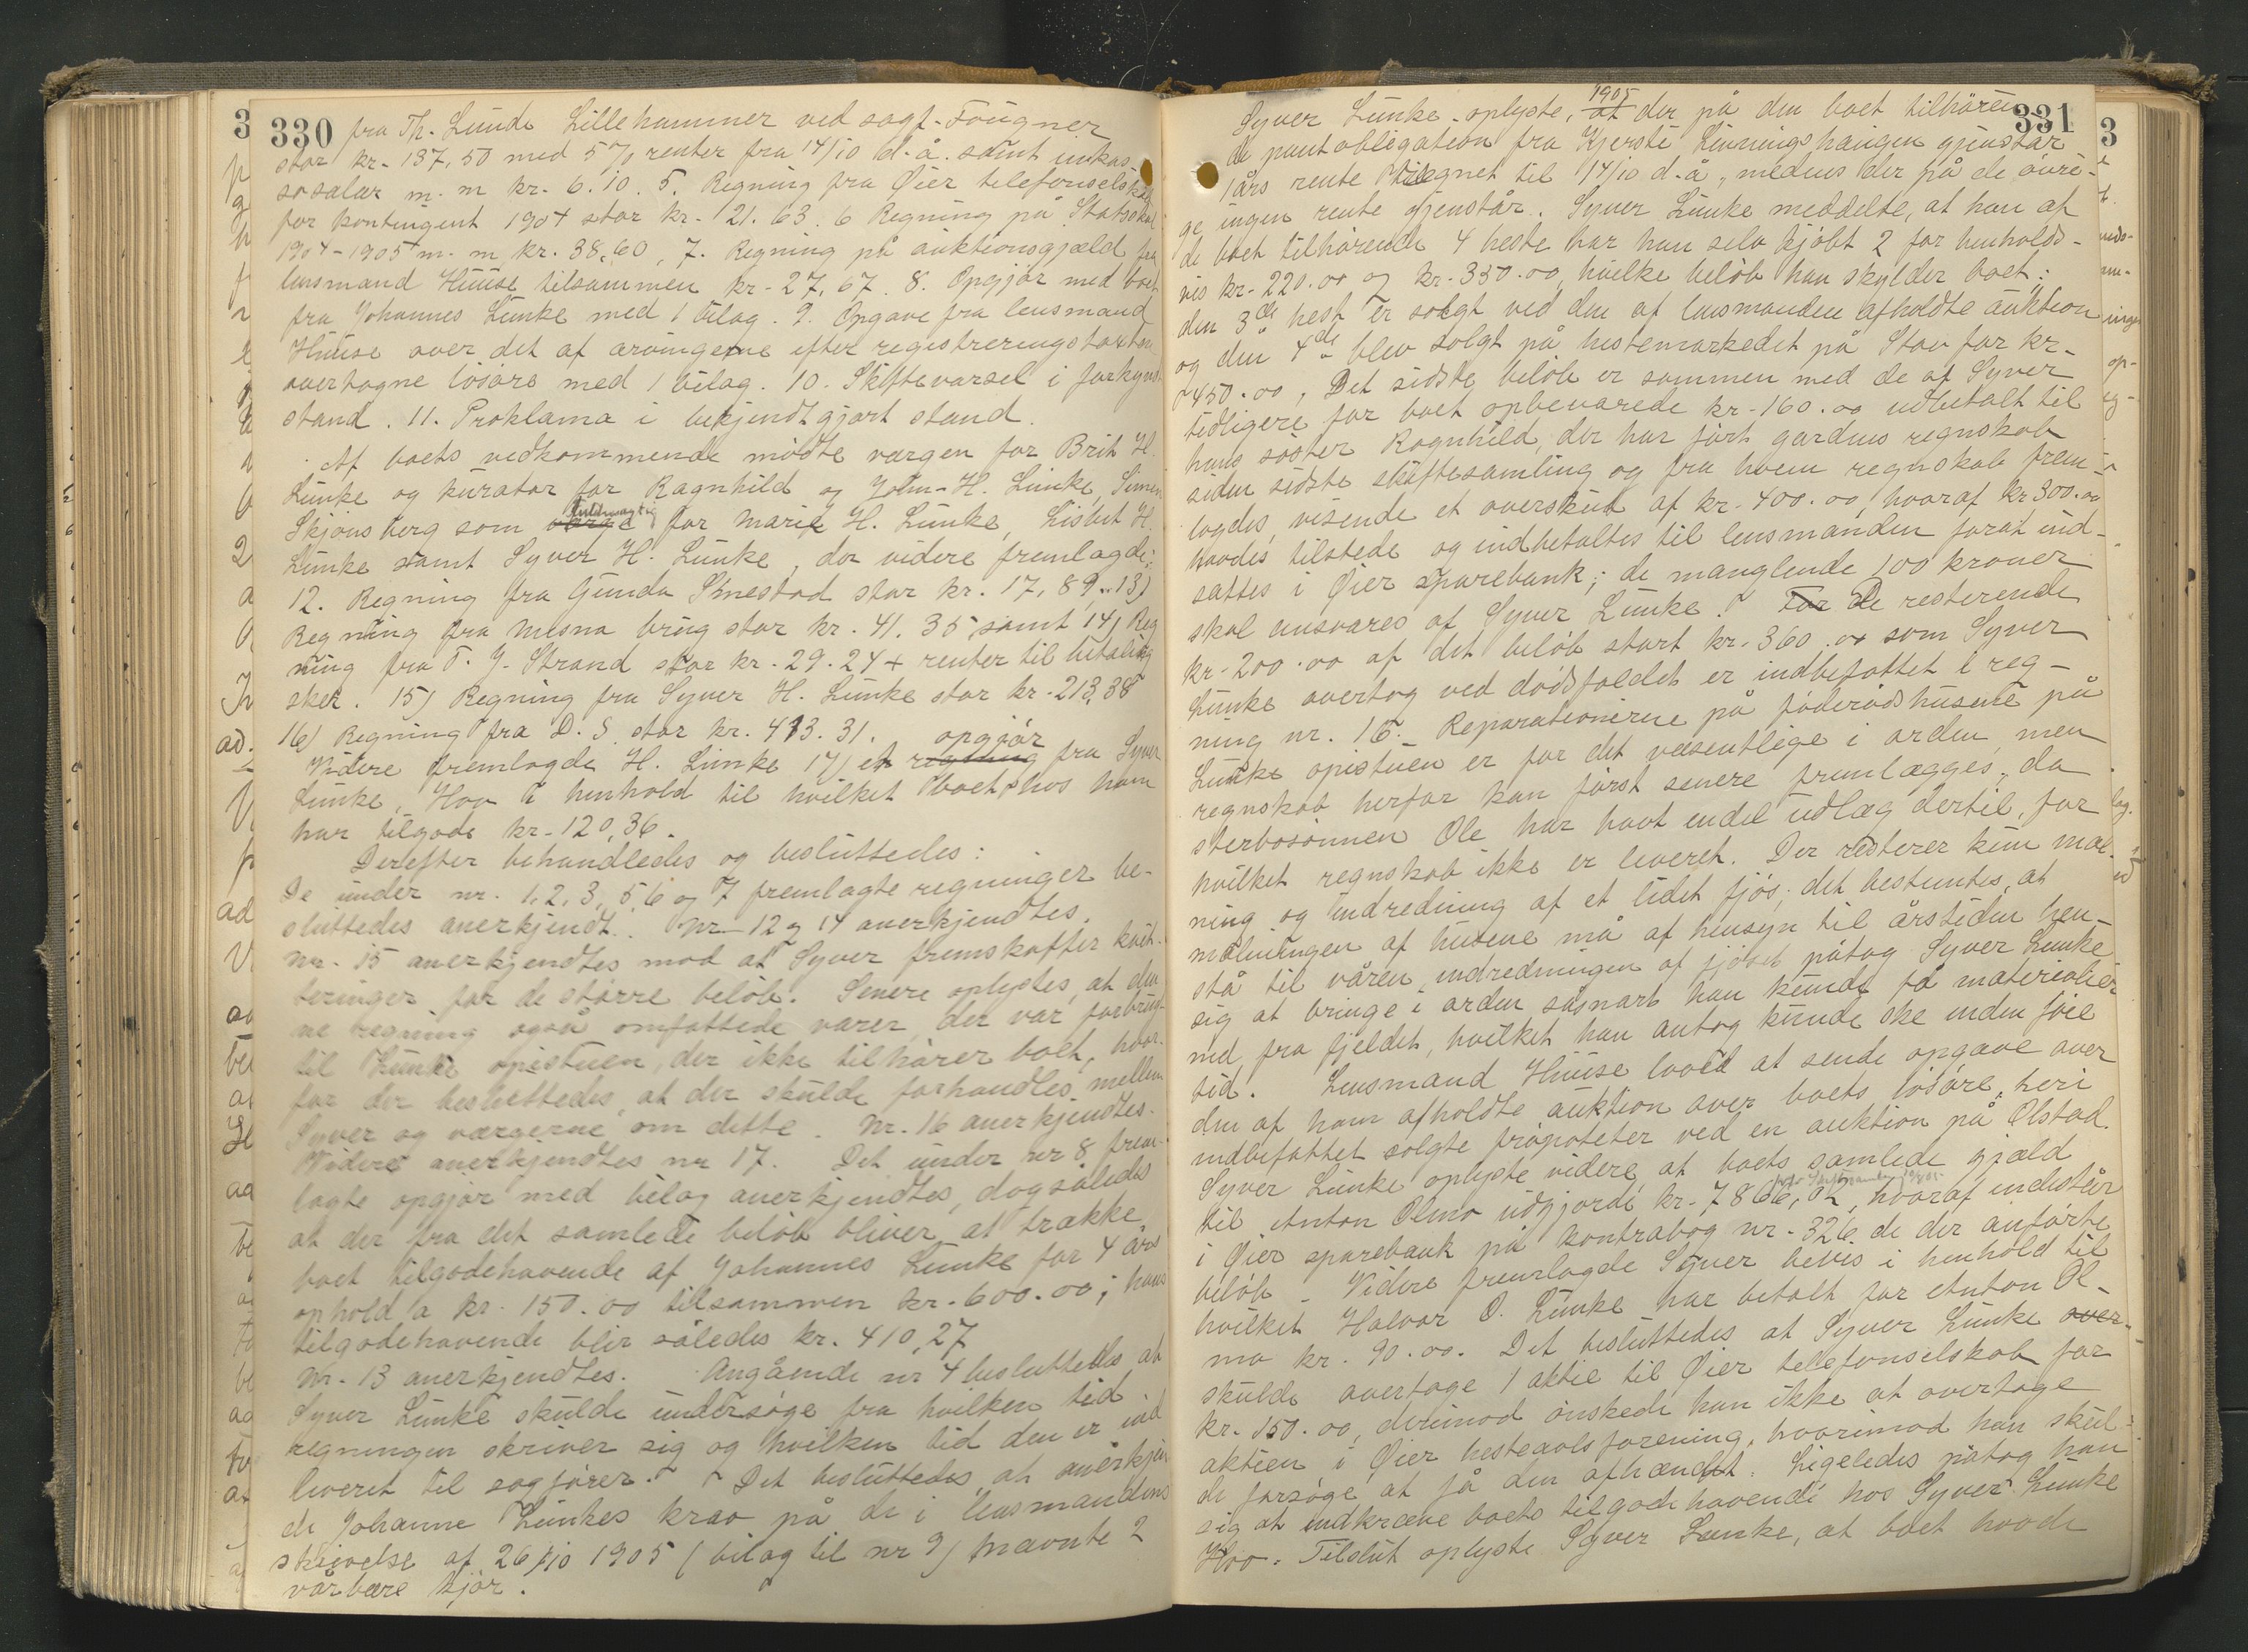 330
fra Th. Lunde Lillehammer ved sagf. Fougner
stor kr. 187,50 med 5% renter fra 14/10 d. å. samt inkas-
sosalær m. m kr. 6.10. 5. Regning fra Øier telefonselskab
for kontingent 1904 stor kr. 21.63. 6 Regning på Statsskat
1904-1905 m. m. kr. 38,60, 7. Regning på auktionsgjæld fra
lensmand Huuse tilsammen kr. 27,67. 8. Opgjør med boet
fra Johannes Lunke med 1 bilag. 9. Opgave fra lensmand
Huuse over det af arvingerne efter registreringstaxten
overtagne løsøre med 1 bilag. 10. Skiftevarsel i forkyndt
stand. 11. Proklama i bekjendtgjort stand.
Af boets vedkommende mødte værgen for Brit H.
Lunke og kurator for Ragnhild og John H. Lunke, Simen
Skjønsberg som fuldmægtig for Marie H. Lunke, Lisbet H.
Lunke samt Syver H. Lunke, der videre fremlagde:
12. Regning fra Gunda Stnestad stor kr. 17,89, 13)
Regning fra Mesna brug stor kr. 41.35 samt 14) Reg
ning fra T. J. Strand stor kr. 29.24 + renter til betaling
sker. 15) Regning fra Syver H. Lunke stor kr. 213,38
16) Regning fra D. S. stor kr. 413.31.
Videre fremlagde H. Lunke 17) et opgjør fra Syver
Lunke, Hov i henhold til hvilket boet hos ham
har tilgode kr. 120,36.
Derefter behandledes og besluttedes:
De under nr. 1, 2, 3, 5, 6 og 7 fremlagte regninger be-
sluttedes anerkjendt. Nr 12 og 14 anerkjendtes.
Nr. 15 anerkjendtes mod at Syver fremskaffer kvit-
teringer for de større beløb. Senere oplystes, at den-
ne regning også omfattede varer, der var forbrugt
til Lunke opistuen, der ikke tilhører boet, hvor-
for der besluttedes, at der skulde forhandles mellem
Syver og værgerne om dette. Nr. 16 anerkjendtes.
Videre anerkjendtes nr 17. Det under nr 8 frem-
lagte opgjør med bilag anerkjendtes, dog således
at der fra det samlede beløb bliver at trække
boet tilgodehavende af Johannes Lunke for 4 års
ophold a kr. 150.00 tilsammen kr. 600.00; hans
tilgodehavende blir således kr. 410,27
Nr. 13 anerkjendtes. Angående nr 4 besluttedes at
Syver Lunke skulde undersøge fra hvilken tid
regningen skriver sig og hvilken tid den er ind
leveret til sagfører. Det besluttedes at anerkjen
de Johanne Lunkes krav på de i lensmandens
skrivelse af 26/10 1905 (bilag til nr 9) nævnte 2
vårbære kjør.
331
Syver Lunke oplyste, 1905 at der på den boet tilhøren
de pantobligation fra Kjersti Linningshaugen gjenstår
1 års rente tilegnet til 14/10 d. å, medens der på de øvri-
ge ingen rente gjenstår. Syver Lunke meddelte, at han af
de boet tilhørende 4 heste har han selv kjøbt 2 for henholds-
vis kr. 220.00 og kr. 330.00, hvilke beløb han skylder boet;
den 3de hest er solgt ved den af lensmanden afholdte auktion
og den 4de blev solgt på hestemarkedet på Stav for kr.
450.00. Det sidste beløb er sammen med de af Syver
tidligere for boet opbevarede kr. 160.00 udbetalt til
hans søster Ragnhild, der har ført gardens regnskab
siden sidste skiftesamling og fra hvem regnskab frem-
lagdes, visende et overskud af kr. 400.00, hvoraf kr 300.00
havdes tilstede og indbetaltes til lensmanden forat ind-
sættes i Øier sparebank; de manglende 100 kroner
skal ansvares af Syver Lunke. For De resterende
kr. 200.00 af det beløb stort kr. 360.00 som Syver
Lunke overtog ved dødsfaldet er indbefattet i reg-
ning nr. 16. Reparationerne på føderådshusene på
Lunke opistuen er for det væsentlige i orden, men
regnskab herfor kan først senere fremlægges, da
sterbosønnen Ole har havt endel udlæg dertil, for
hvilket regnskab ikke er leveret. Der resterer kun mal-
ning og indredning af et lidet fjøs; det bestemtes, at
malningen af husene må af hensyn til årstiden hen-
stå til våren, indredningen af fjøset påtog Syver Lunke
sig at bringe i orden såsnart han kunde få materialier
ned fra fjeldet, hvilket han antog kunde ske inden føie
tid. Lensmand Huuse loved at sende opgave over
den af ham afholdte auktion over boets løsøre, heri
indbefattet solgte frøpoteter ved en auktion på Olstad.
Syver Lunke oplyste videre, at boets samlede gjæld
til Anton Olmo udgjorde kr. 7866,02, hvoraf indestår
i Øier sparebank på kontrabog nr. 326 de der anførte
beløb. Videre fremlagde Syver bevis i henhold til
hvilket Halvor O. Lunke har betalt for Anton Ol-
mo kr. 90.00. Det besluttedes at Syver Lunke over-
skulde overtage 1 aktie til Øier telefonselskab for
kr. 150.00, derimod ønskede han ikke at overtage
aktien i Øier hesteavlsforening, hvorimod han skul-
de forsøge at få den afhændet. Ligeledes påtog han
sig at indkræve boets tilgodehavende hos Syver Lunke
Hov. Tilslut oplyste Syver Lunke, at boet havde